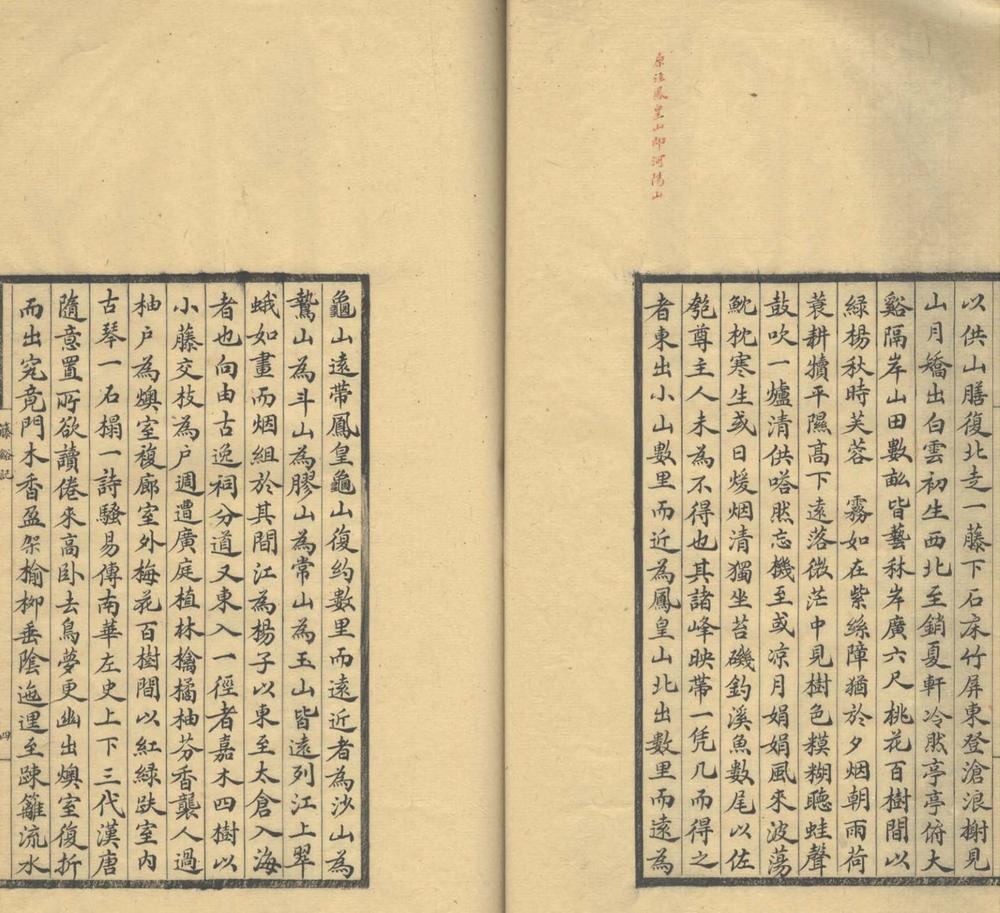 原注鳳皇山即河陽山
以供山膳復北走一藤下石床竹屏東登滄浪榭見
山月矯出白雲初生西北至銷夏軒冷然亭亭俯大
谿隔岸山田數畝皆藝秫岸廣六尺桃花百樹間以
綠楊秋時芙蓉 霧如在紫絲障猶於夕烟朝雨荷
蓑耕犢平隰高下遠落微茫中見樹色糢糊聽蛙聲
鼓吹一爐清供嗒然忘機至或凉月娟娟風來波蕩
魷枕寒生或日煖烟清獨坐苔磯釣溪魚數尾以佐
匏尊主人未為不得也其諸峰映帶一凭几而得之
者東出小山數里而近為鳳皇山北出數里而遠為
龜山遠帶鳳皇龜山復約數里而遠近者為沙山為
鷔山為斗山為膠山為常山為玉山皆遠列江上翠
蛾如畫而烟組於其間江為楊子以東至太倉入海
者也向由古逸祠分道又東入一徑者嘉木四樹以
小藤交枝為戶週遭廣庭植林檎橘柚芬香襲人過
柚戶為燠室複廊室外梅花百樹間以紅綠趺室內
古琴一石榻一詩騷易傳南華左史上下三代漢唐
隨意置所欲讀倦來高臥去鳥夢更幽出燠室復折
而出究竟門木香盈架榆柳垂陰迤邐至疎籬流水
藤谿記
四